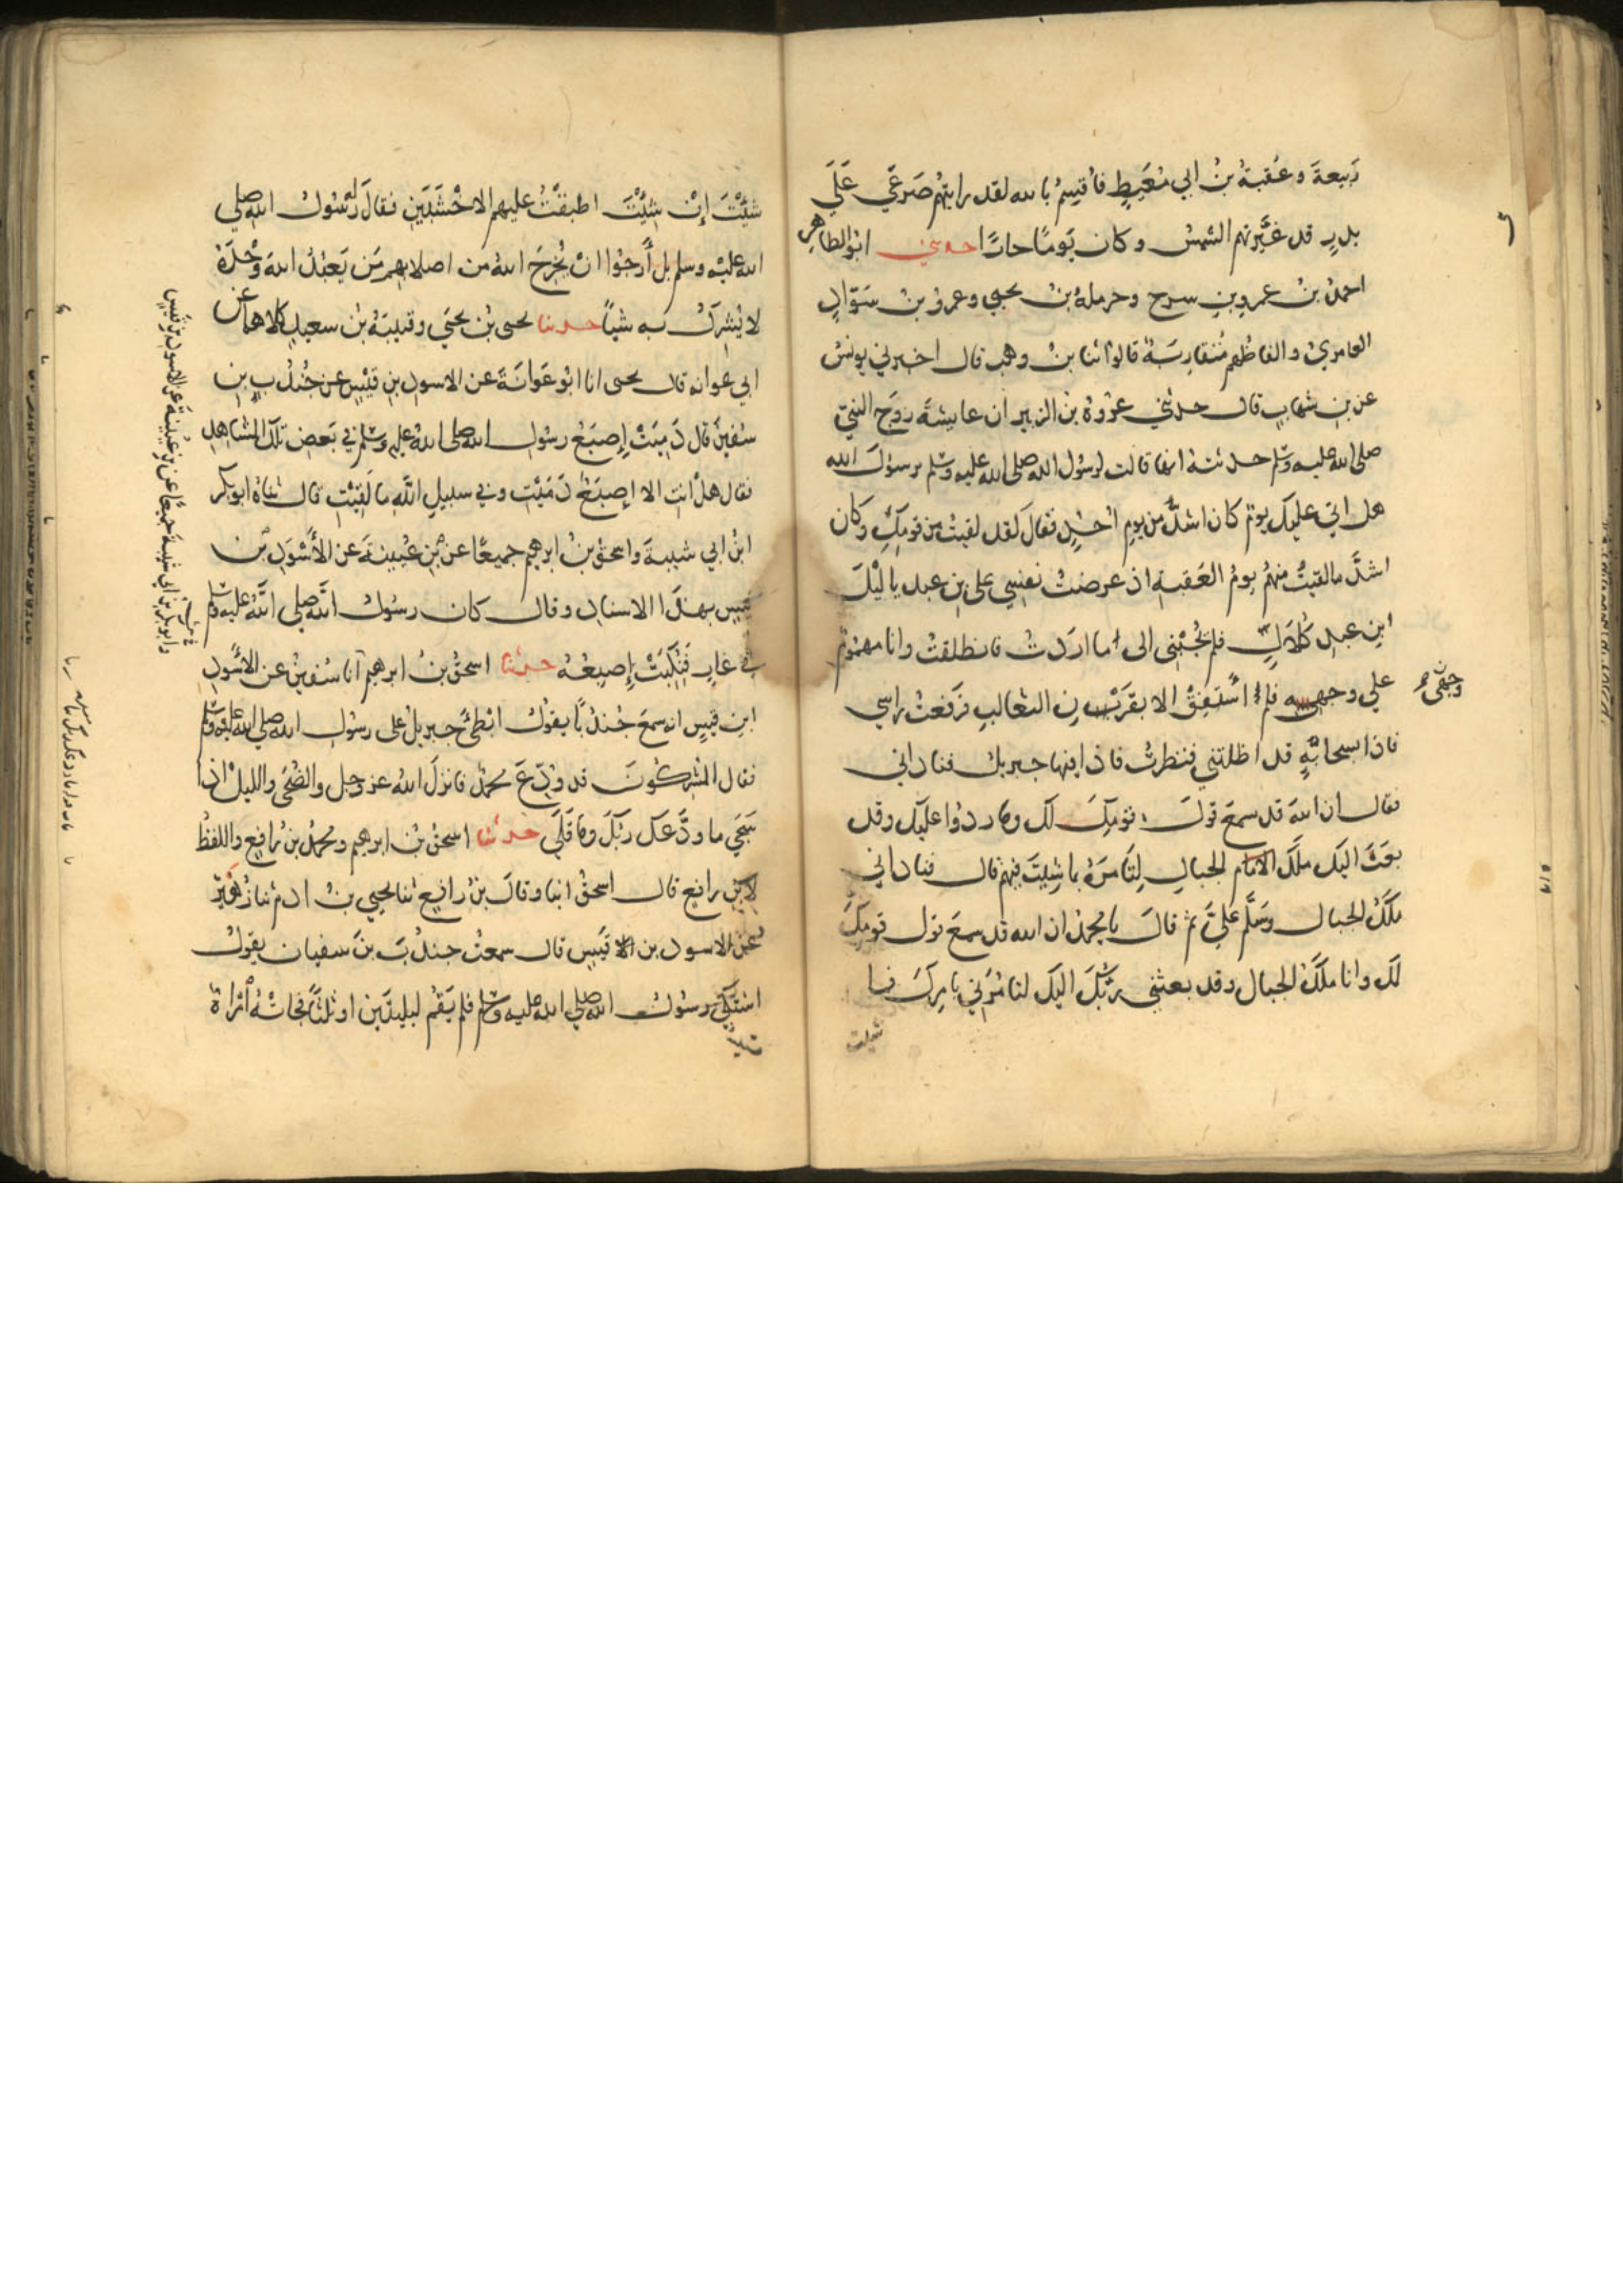 رَبيعةَ وعُقبةُ بنُ ابي مُعَيطٍ فأُقسِمُ بالله لقد رايتهُم صَرعَي عَلَي
بدرٍ قد غيَّرتهم الشمسُ وكان يَومًا حارًّا حدثني ابوُ الطاهرِ
احمدُ بنُ عمرو بنِ سرح وحرملةُ بنُ يحيي وعمرُو بنُ سَوَّادٍ
العامريُّ والفاظُهم مُتقاربَةٌ قالوُا ثنا بنُ وهب قال اخبرني يونسُ
عن بنِ شهابٍ قال حدثني عُروَةُ بنُ الزبير ان عايشةَ زوجَ النبيّ
صلى الله عليه وسلم حدثتهُ انها قالت لرسُول الله صلى الله عليه وسلم يرسولَ الله
هل اتي عليكَ يومٌ كان اشدَّ من يومِ اُحُدٍ فقالَ لقد لقيتُ من قومِكِ وكان
اشدَّ مالقيتُ منهُم يومُ العَقبةِ اذ عرضتُ نفسِي على بنِ عبد يالَيْلَ
ابنِ عبدِ كُلالٍ فلم يُجُبْنِى الى ما اردتُ فانطلقتُ وانا مهمُومٌ
علي وجهي فلم اَستفِقْ الا بقَرَنِ الثعَالبِ فرفعتُ راسِي
وجهِي
فاذا بسحابَةٍ قد اظلتني فنظرتُ فاذا فيها جبريلُ فناداني
فقال ان اللهَ قد سمعَ قولَ قومِكَ لك وما ردُّوا عليكَ وقد
بعثَ اليكَ ملَكَ الجبالِ لِتَامُرَهُ بما شِيتَ فيهم قال فناداني
ملَكُ الجبال وسَلَّم عليَّ ثم قالَ يا محمدُ ان الله قد سمعَ قول قومِكَ
لك وانا ملَكُ الجبال وقد بعثني ربُّكَ اليك لتامُرَني بامرِكَ فما
شيت
شيْتَ إنْ شِيْتَ اطبقْتُ عليهم الاخشَبَينِ فقالَ لهُ رسُولُ الله صلي
الله عليْه وسلم بل أرجُوا انْ يُخرجَ اللهُ من اصلابِهم مَن يَعبُدُ اللهَ وَحْدَهُ
لا يُشرِكُ به شيًا حدثنا يحيى بنُ يحيَي وقتيبَةُ بنُ سعيدٍ كلاهما عن
ابي عوانه قال يحيى انا ابوُ عَوانَةَ عن الاسودِ بنِ قيْسٍ عن جُندُبِ بنِ
سُفينَ قال دَمِيَتْ إصبَعُ رسُولِ الله صلى اللهُ عليه وسلم في بَعضِ تلكَ المَشاهِدِ
فقال هلْ انتِ الا إصبَعٌ دَمَيْتِ وفي سبيلِ اللَّهِ ما لَقيْتِ قال ثناهُ ابو بكرِ
ابنُ ابي شيبةَ واسحقُ بنُ ابرهيمَ جميعًا عن بنِ عُيينةَ عن الأسْوَدِ بنِ
قيسٍ بهذَا الاسنادِ وقال كان رسُولُ اللَّه صلي اللَّهُ عليه وسلم
في غارٍ فَنُكِبَتْ إصبِعُهُ حدثنا اسحقُ بنُ ابرهيم انا سُفينُ عن الاسْوَدِ
ابنِ قيسٍ انه سمعَ جُندُبًا يقولُ ابْطئَ جبريلُ على رسُولِ الله صلي الله عليه وسلم
فقال المشركُونَ قد وُدِّعَ محمدٌ فانزلَ اللهُ عز وجل والضُحَى والليلْ اذا
سَجَي ما ودَّعكَ ربُّكَ وما قَلَي حدثنا اسحقُ بنُ ابرهيم ومحمدُ بنُ رافِعٍ واللفظُ
لابنِ رافعٍ قال اسحقُ انبا وقالَ بنُ رافِعٍ ثنا يحيي بنُ ادم ثنا زُهَيْرٌ
عن الاسود بن قيَسٍ قال سمعتُ جندُبَ بنَ سفيان يقولُ
اشتكَي رسُولُ الله صلي الله عليه وسلم فلم يَقُم ليلتَين او ثلثًا فجاتْهُ امْراةٌ
وابو بكرِ بنُ ابي شيبةَ جميعًا عن بنِ عُيينةَ عن الاسودِ بنِ قيسٍ